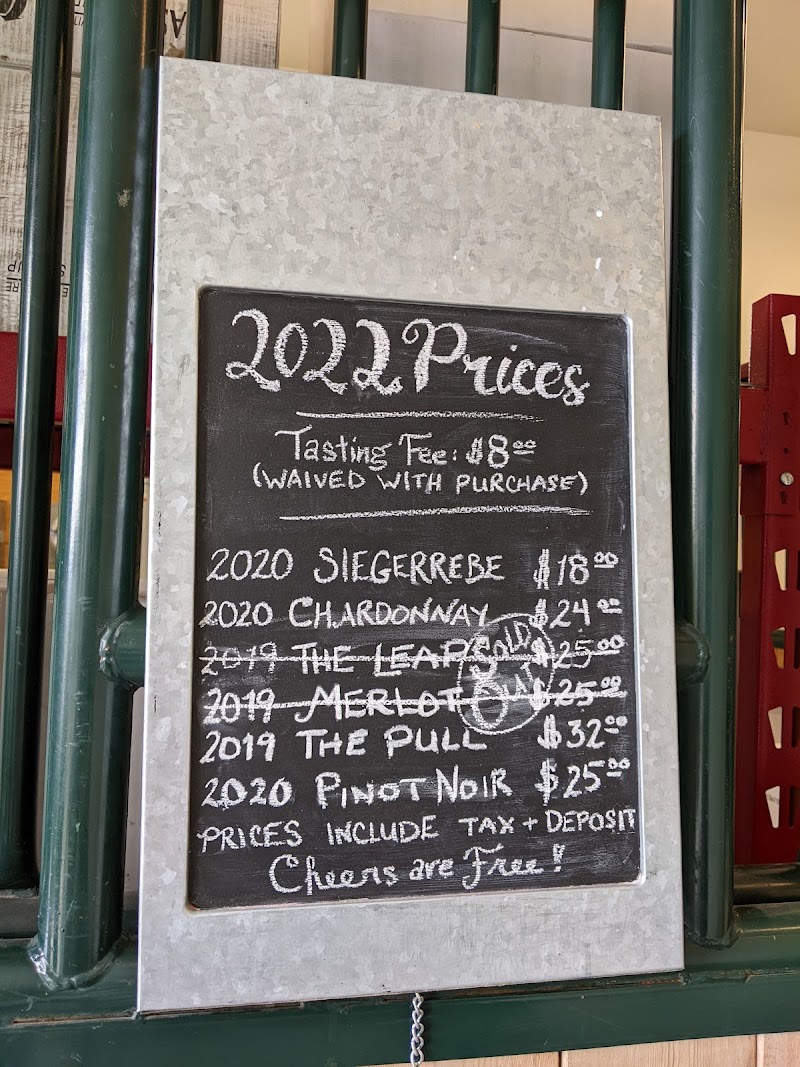 2022 Prices
Tasting Fee: $8.00
(WAIVED WITH PURCHASE)
2020 SIEGERREBE $18.00
2020 CHARDONNAY $24.00
2019 THE LEAP $25.00
SOLD OUT
2019 MERLOT $25.00
2019 THE PULL $32.00
2020 PINOT NOIR $25.00
PRICES INCLUDE TAX + DEPOSIT
Cheers are Free!